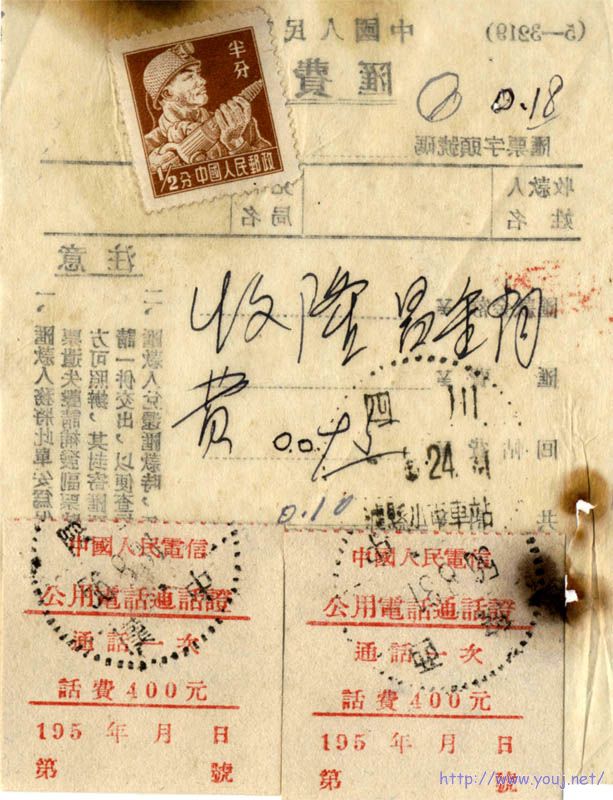 (5—3219)
中國人民
半分
1/2分中國人民郵政
匯費
0.18
匯票字頭號碼
收款人
姓名
局名
注意
收隆昌
費
一、匯款人務將此單妥為
票遺失聲請補發副票
方可照辦，其封寄匯
請一併交出，以便查
二、匯款人兌還匯款時，
匯
回帖費
共
四川
24
車站
0.10
中國人民電信
公用電話通話證
通話一次
話費400元
195 年 月 日
第 號
中國人民電信
公用電話通話證
通話一次
話費400元
195 年 月 日
第 號
http://www.youj.net/